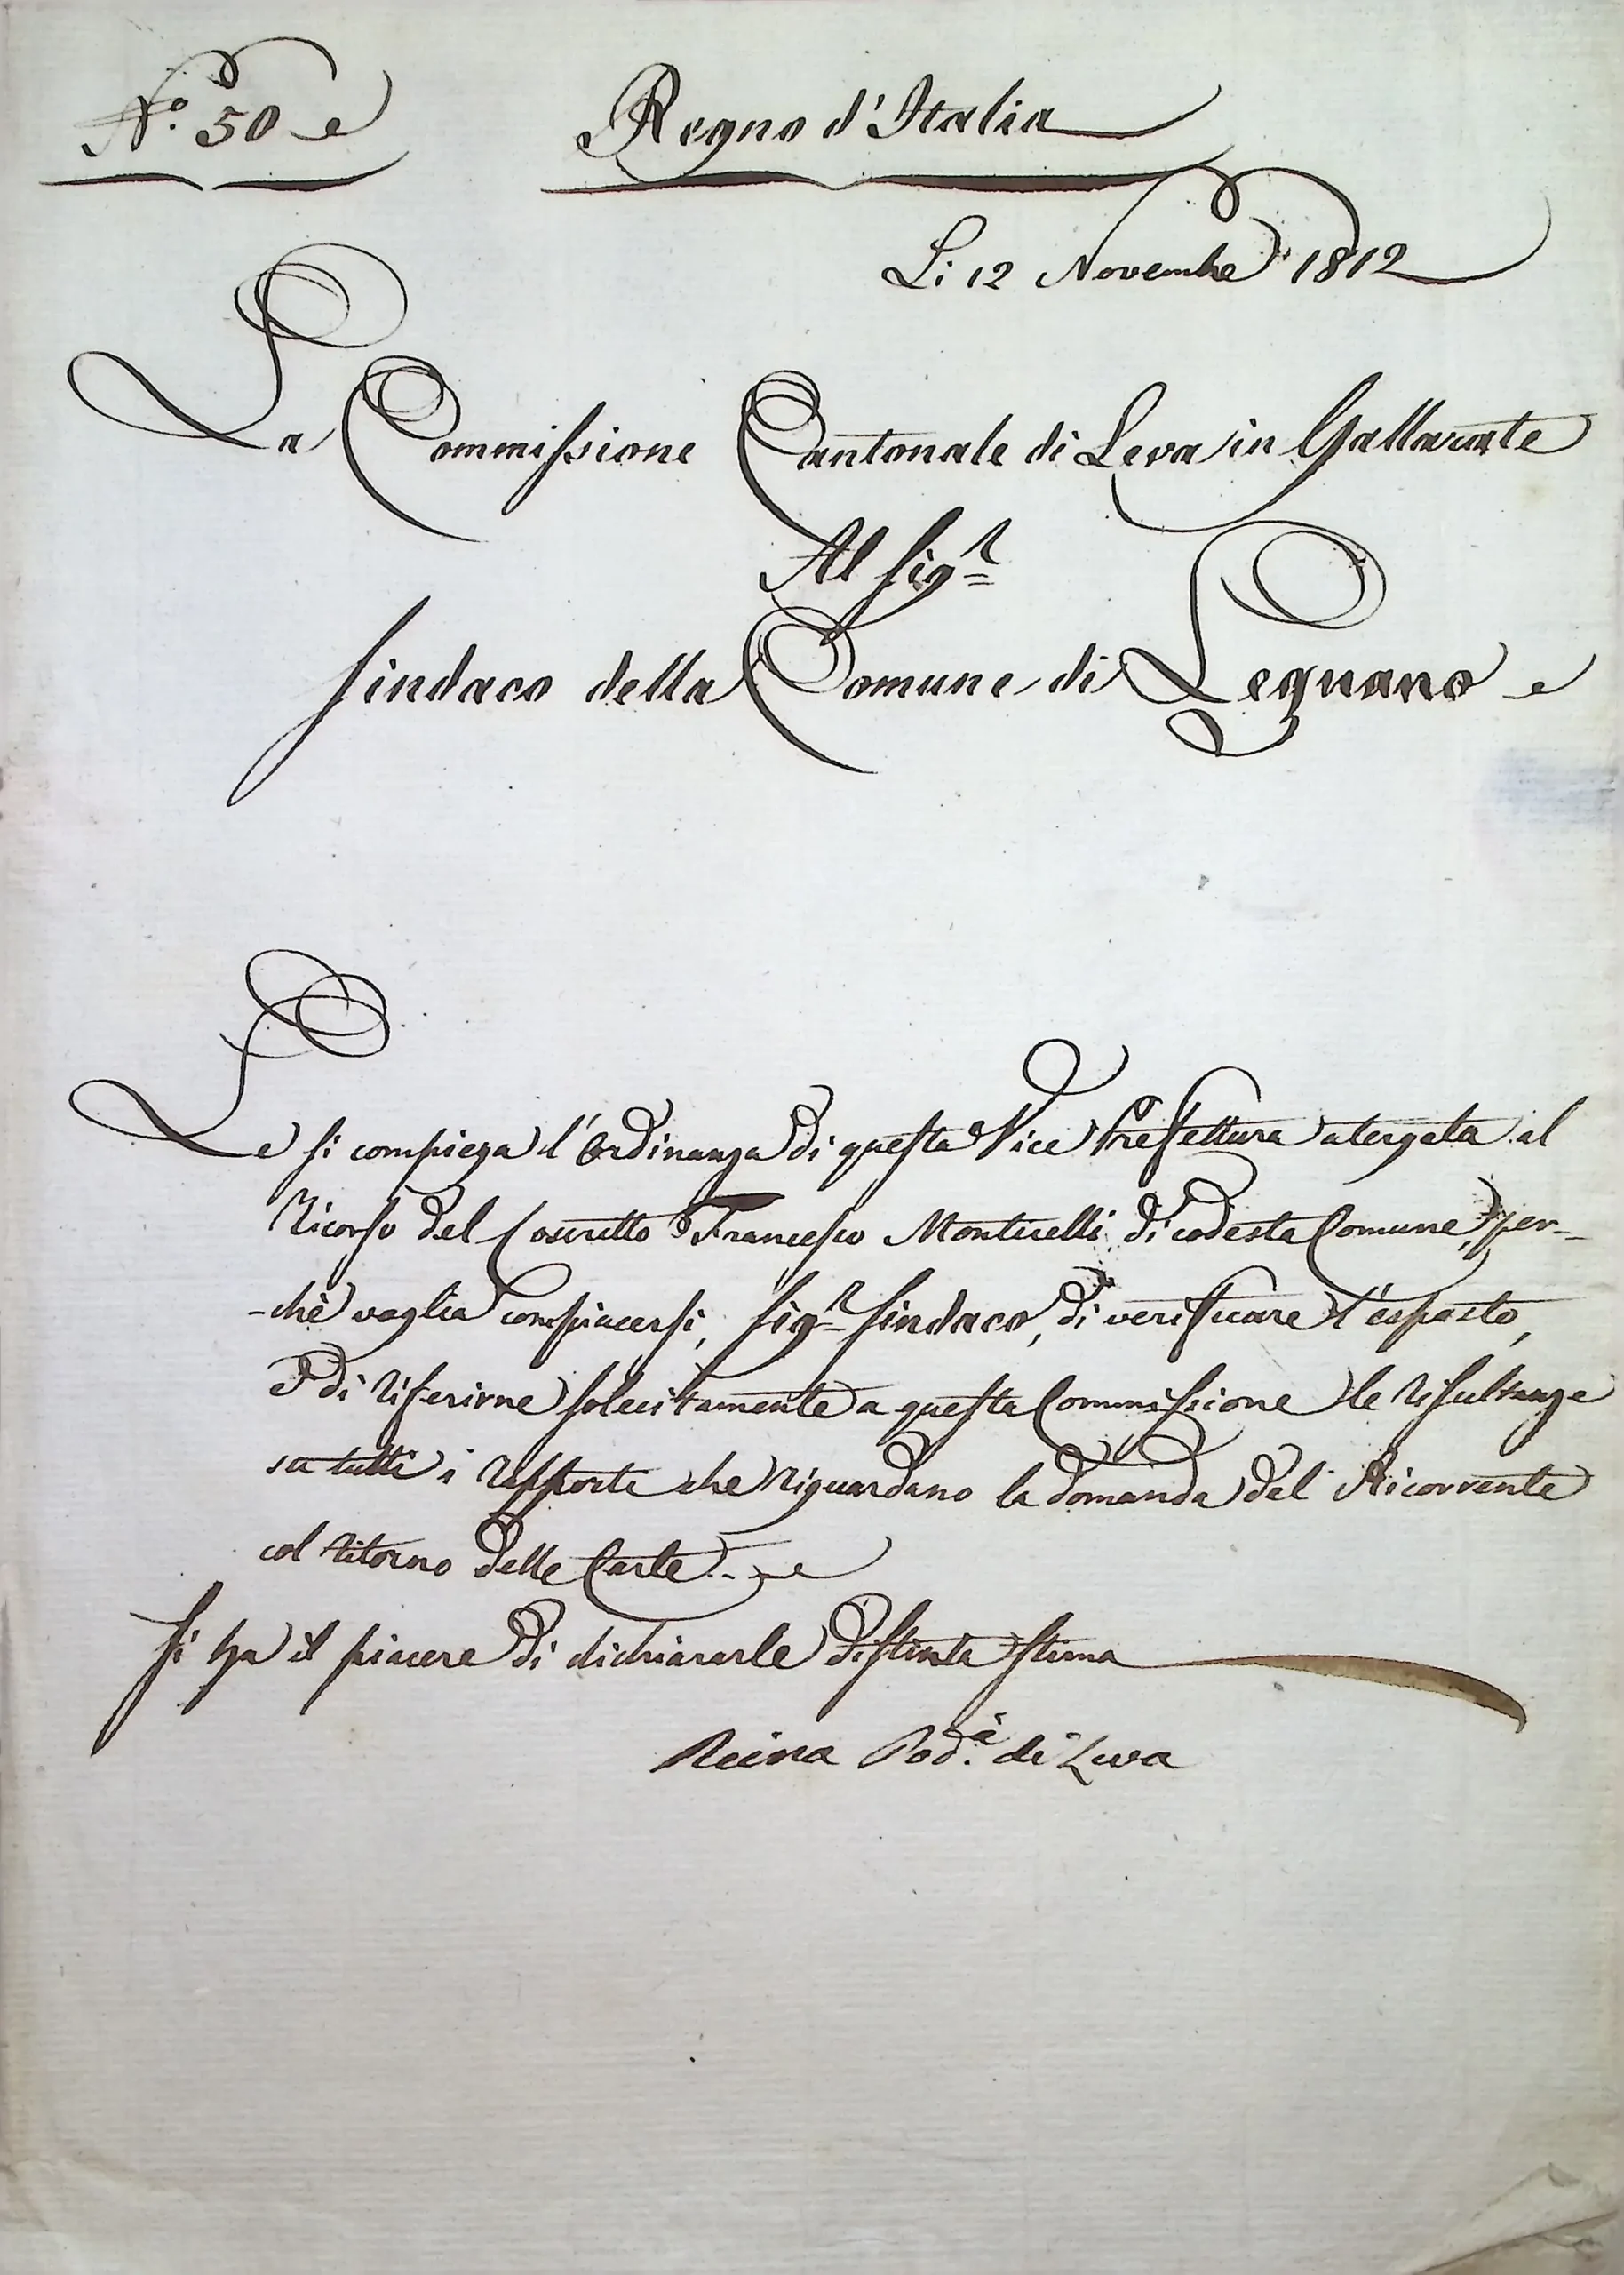 N.º 50
Regno d'Italia
Li 12 Novembre 1812
La Commissione Cantonale di Leva in Gallarate
Al Sigr
Sindaco della Comune di Legnano
Le si compiega l'Ordinanza di questa Vice Prefettura atergata al
Ricorso del Coscritto Francesco Monticelli di codesta Comune, per-
-chè voglia compiacersi, Sigr Sindaco, di verificare l'esposto,
e di riferirne solecitamente a questa Commissione le risultanze
su tutti i rapporti che riguardano la domanda del Ricorrente
col ritorno delle Carte.
Si ha il piacere di dichiararle distinta stima
Reina Pod.à di Leva